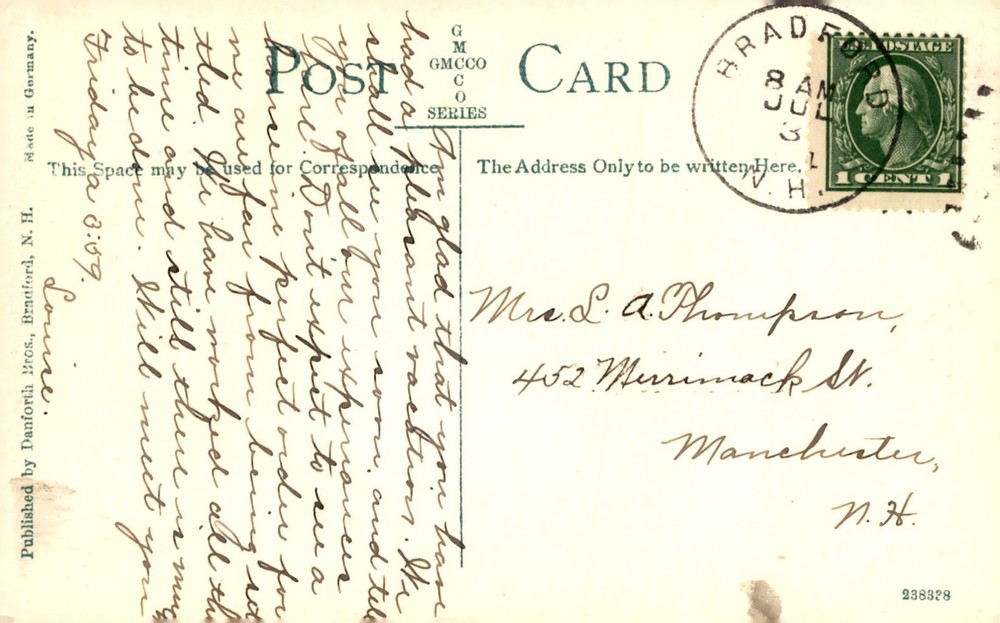 POST CARD
G
M
GMCCO
C
O
SERIES
This Space may be used for Correspondence
The Address Only to be written Here.
BRADFORD
8 AM
JUL
3
1
N.H.
U.S. POSTAGE
1 CENT 1
Am glad that you have
had a pleasant vacations. We
shall see you soon, and tell
you of all our experiances
here. Don't expect to see a
house in perfect order for
we are far from being set
tled. We have worked all the
time and still there is much
to be done. Will meet you
Friday a 3:59.
Louise.
Mrs. L. A. Thompson,
452 Merrimack St.
Manchester,
N.H.
Published by Danforth Bros., Bradford, N. H.
Made in Germany.
238328